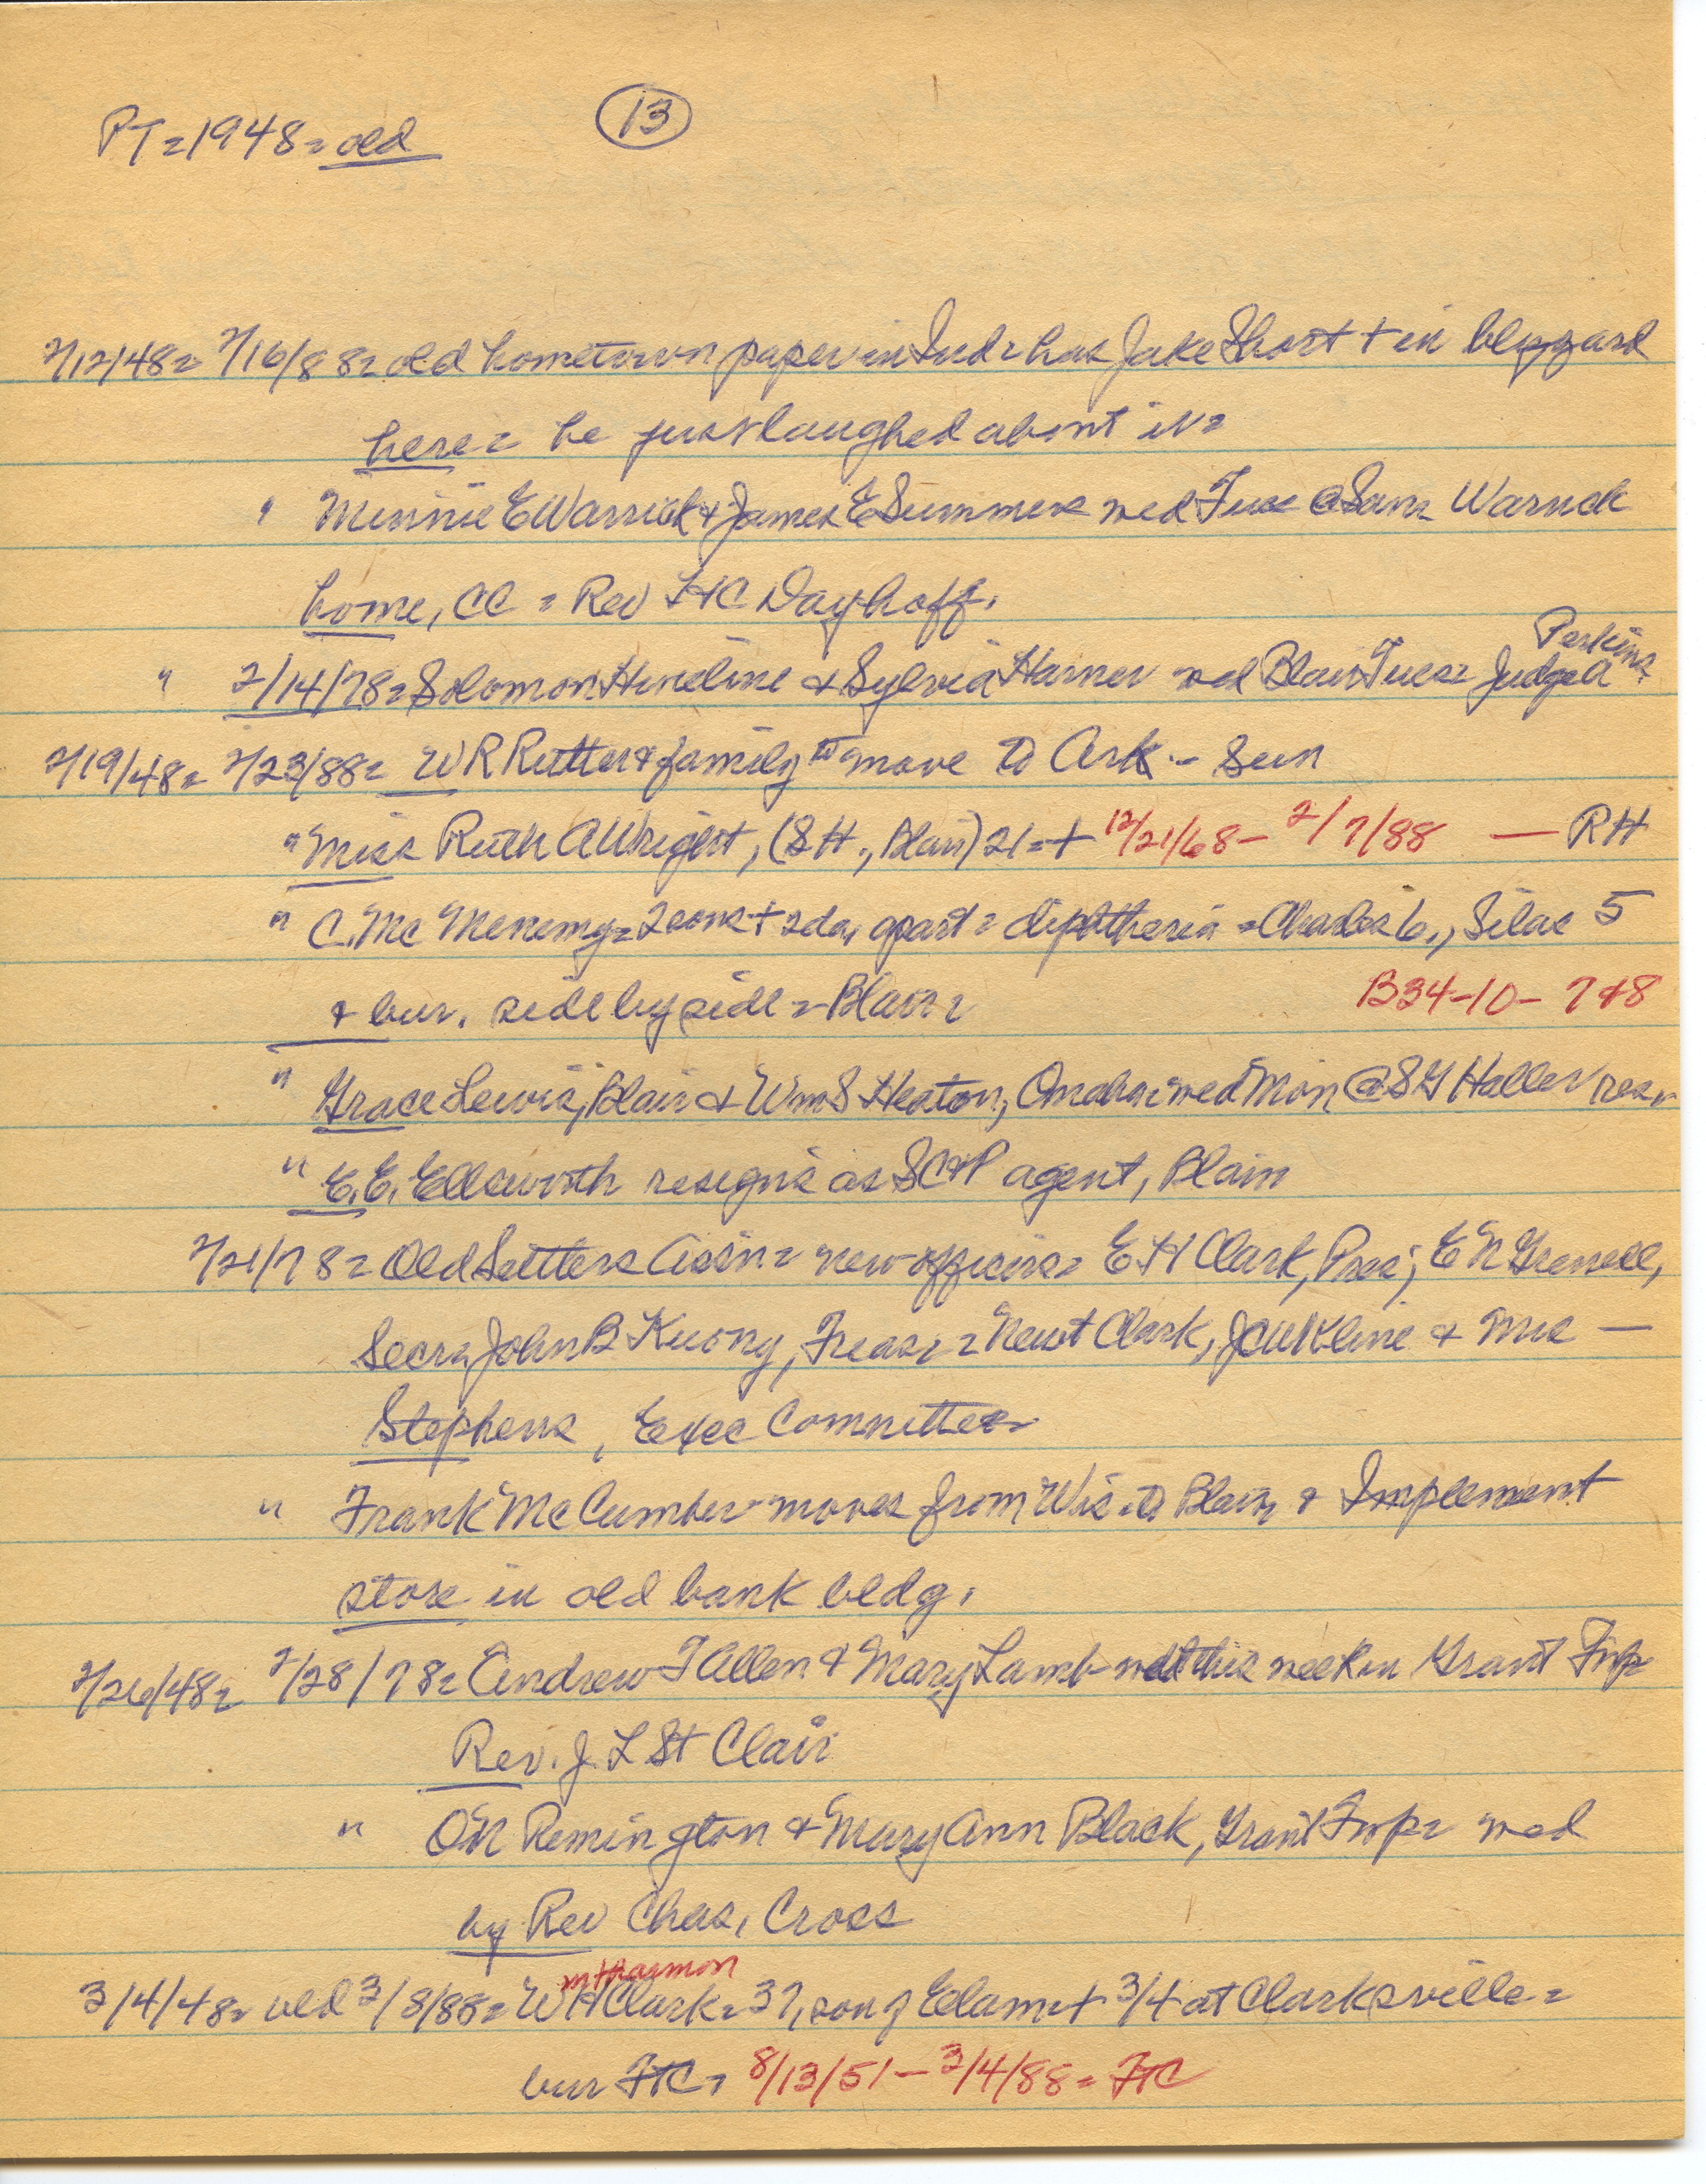 PT = 1948 = old
13
2/12/48 = 2/16/88 = old hometown paper in Ind = has Jake Short + in blizzard
here = he just laughed about it =
" Minnie E Warrick & James E Summers wed Tues @ Sam Warrick
home, CC = Rev HC Dayhoff.
Perkins.
" 2/14/78 = Solomon Hineline & Sylvia Harner wed Blair Tues = Judge A
2/19/48 = 2/23/88 = W R Rutter & family to move to Ark - Sun
" Miss Ruth A Wright, (SH., Blair) 21 = + 12/21/68 - 2/7/88 — RH
" C. Mc Menemy = 2 sons + 2 da, apart = diphtheria = Charles 6., Silas 5
& bur. side by side = Blair = B34-10- 7+8
" Grace Lewis, Blair & Wm S Heaton, Omaha = wed Mon @ S H Haller res =
" E. E. Ellsworth resigns as SC&P agent, Blair
2/21/78 = Old Settlers Assin = new officers = E H Clark, Pres; E N Grenell,
Secr = John B Kuony, Treas = Newt Clark, J W Kline & Mrs —
Stephens, Exec Committee =
" Frank McCumber moves from Wis. to Blair & Implement
store in old bank bldg.
2/26/48 = 2/28/78 = Andrew T Allen & Mary Lamb wed this week in Grant Twp
Rev. J. L St Clair
" ON Remington & Mary Ann Black, Grant Twp = wed
by Rev Chas, Cross
m Harmon
3/4/48 = old 3/8/88 = W H Clark = 37, son of Elam + 3/4 at Clarksville =
bur FTC = 8/13/51 - 3/4/88 = FTC